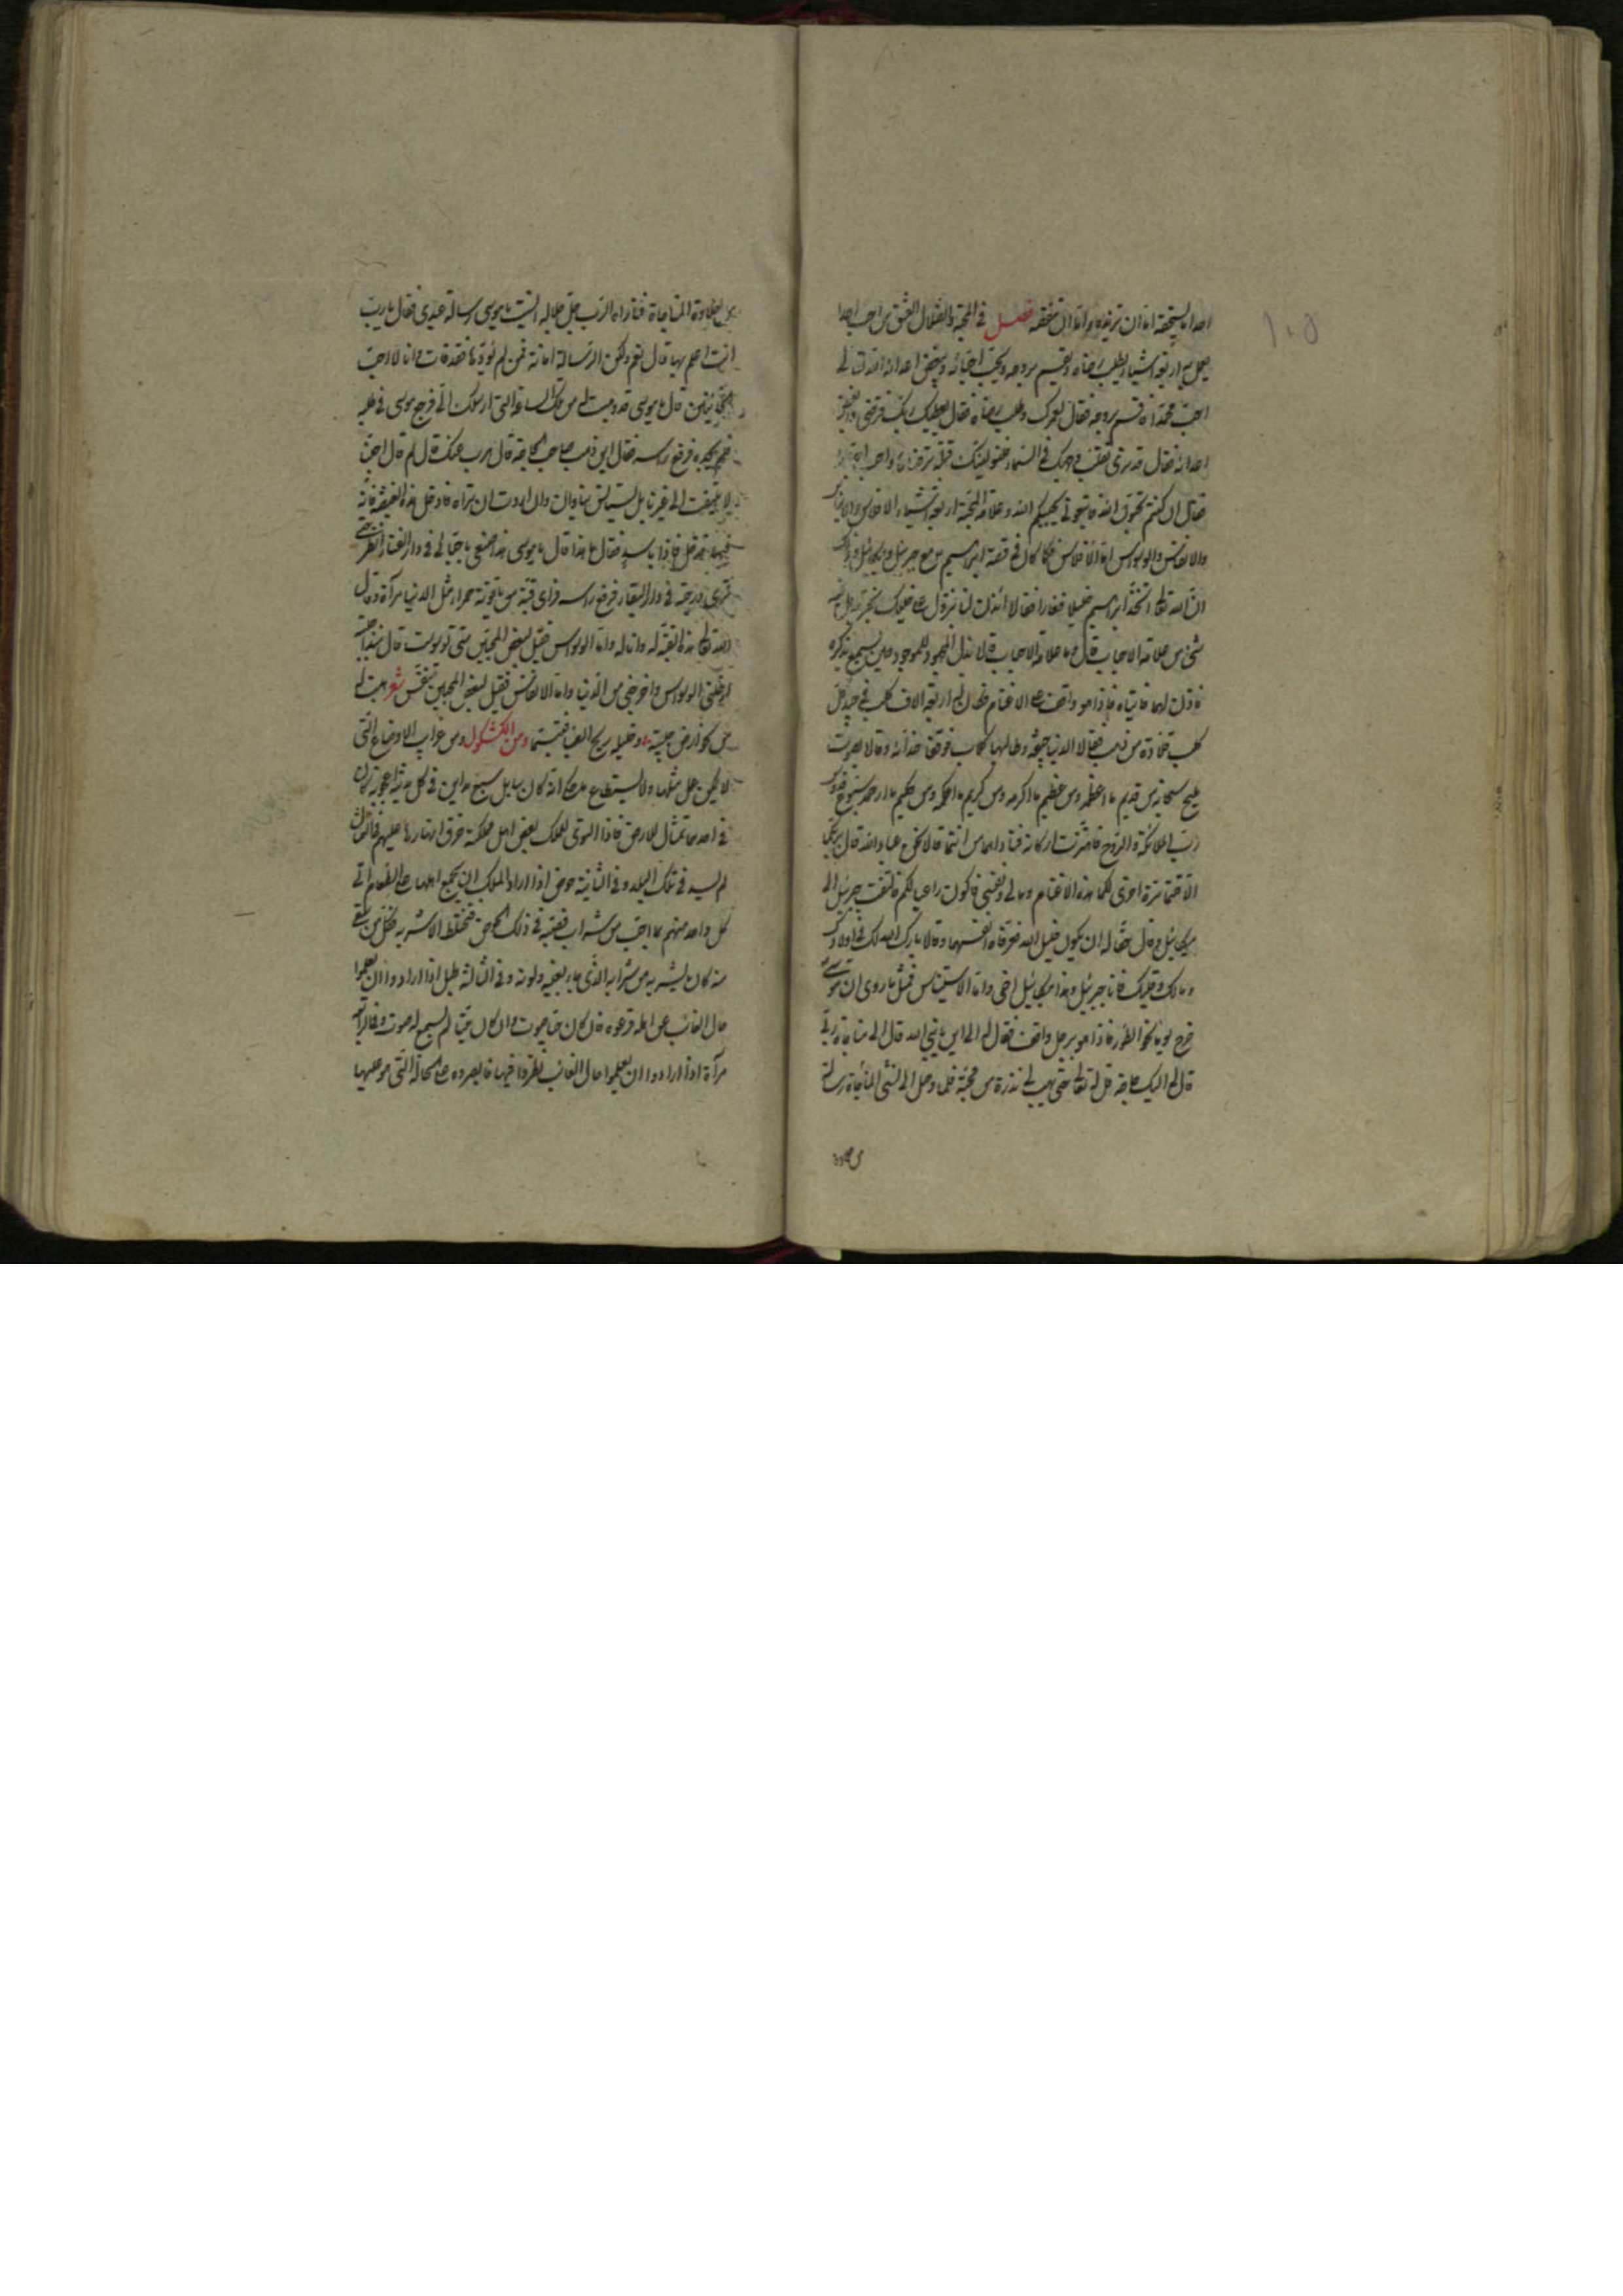 احدا ما يستحقه اما ان تزيده واما ان تنقصه فصل في المحبة والضلال العشق من احب احدا
يعمل مع اربعة اشياء يطلب رضاه ويقسم بروحه ويحب احبائه ويبغض اعدائه الله تعالى
احب محمدا قسم بروحه فقال لعمرك وطلب رضاه فقال يعطيك ربك فترضى
فقال قد نرى تقلب وجهك في السماء فلنولينك قبلة ترضاها واحب
فقال ان كنتم تحبون الله فاتبعوني يحببكم الله وعلامة المحبة اربعة اشياء الافلاس والاستيناس
والانفاس والوسواس اما الافلاس فكما كان في قصة ابراهيم مع جبرئيل وميكائيل
ان الله تعالى اتخذ ابراهيم خليلا فغارا فقالا ائذن لنا ننزل على خليلك
شئ من علامة الاحباب قال وما علامة الاحباب قالا بذل المجهود للموجود حين يسمع بذكره
فاذن لهما فاتياه فاذا هو واقف على الاغنام وكان له اربعة الاف كلب في جيد كل
كلب قلادة من ذهب فقالا الدنيا جيفة وطالبها كلاب فوقفا حذائه وقالا بصوت
مليح سبحانه من قديم ما اعظمه ومن عظيم ما اكرمه ومن كريم ما احكمه ومن حكيم ما ارحمه سبوح قدوس
رب الملائكة والروح فاهتزت اركانه فناداهما من انتما قالا نحن عباد الله قال بربكما
الا قلتما مرة اخرى لكما هذه الاغنام ومالي ونفسي فاكون راعيا لكم فالتفت جبرئيل الى
ميكائيل وقال حقا له ان يكون خليل الله فعرفاه انفسهما وقالا بارك الله لك في اولادك
ومالك فانا جبرئيل وهذا ميكائيل اخي واما الاستيناس فمثل ما روى ان موسى
خرج يوما نحو الطور فاذا هو برجل واقف فقال له الى اين يا نبي الله قال الى مناجاة ربي
قال لي اليك حاجة قل له تعالى حتى يهب لي ذرة من محبته فلما وصل الى المناجاة رسالة
طلاوة المناجاة فناداه الرب جل جلاله انسيت يا موسى رسالة عبدي فقال يا رب
انت اعلم بها قال نعم ولكن الرسالة امانة فمن لم يؤدها فقد خان وانا لا احب
الخائنين قال يا موسى قد وهبت له من تلك الساعة التي ارسلك الي فرجع موسى في طلبه
فلم يجده فرفع راسه فقال اين ذهب صاحب الحاجة قال هرب منك قال لم قال احبنا
لا يلتفت الى غيرنا بل يستانس بنا وان اردت ان تراه فادخل هذه الغيضة فانه
فيها فدخل فاذا باسد فقال ما هذا قال يا موسى هذا صنعي باحبائي في دار الفناء انظر
ترى درجته في دار البقاء فرفع راسه فراى قبة من ياقوتة حمراء مثل الدنيا مرآة وقال
الله تعالى هذه القبة له وانا له واما الوسواس فقيل لبعض المجانين متى توسوست قال
ادخلني الوسواس واخرجني من الدنيا واما الانفاس فقيل لبعض المجانين تنفس شعر
ومن الكشكول ومن غرايب الاوضاع التي
لا يمكن عمل مثلها ولا يستطاع انه كان ببابل سبع مداين في كل مدينة اعجوبة كان
في احدها تمثال الارض فاذا التوى للملك بعض اهل مملكته خرق انهارها عليهم في التمثال
لم يسد في تلك البلد وفي الثانية حوض اذا اراد الملك ان يجمع اهلها على الطعام اتى
كل واحد منهم بما احب من شراب فصبه في ذلك الحوض فتختلط الاشربة فكل من سقى
منه كان يشربه من شرابه الذي جاء بعينه ولونه وفي الثالثة طبل اذا ارادوا ان يعلموا
حال الغائب عن اهله قرعوه فان كان حيا صوت وان كان ميتا لم يسمع له صوت وفي الرابعة
مرآة اذا ارادوا ان يعلموا حال الغائب نظروا فيها فابصروه على الحالة التي هو عليها